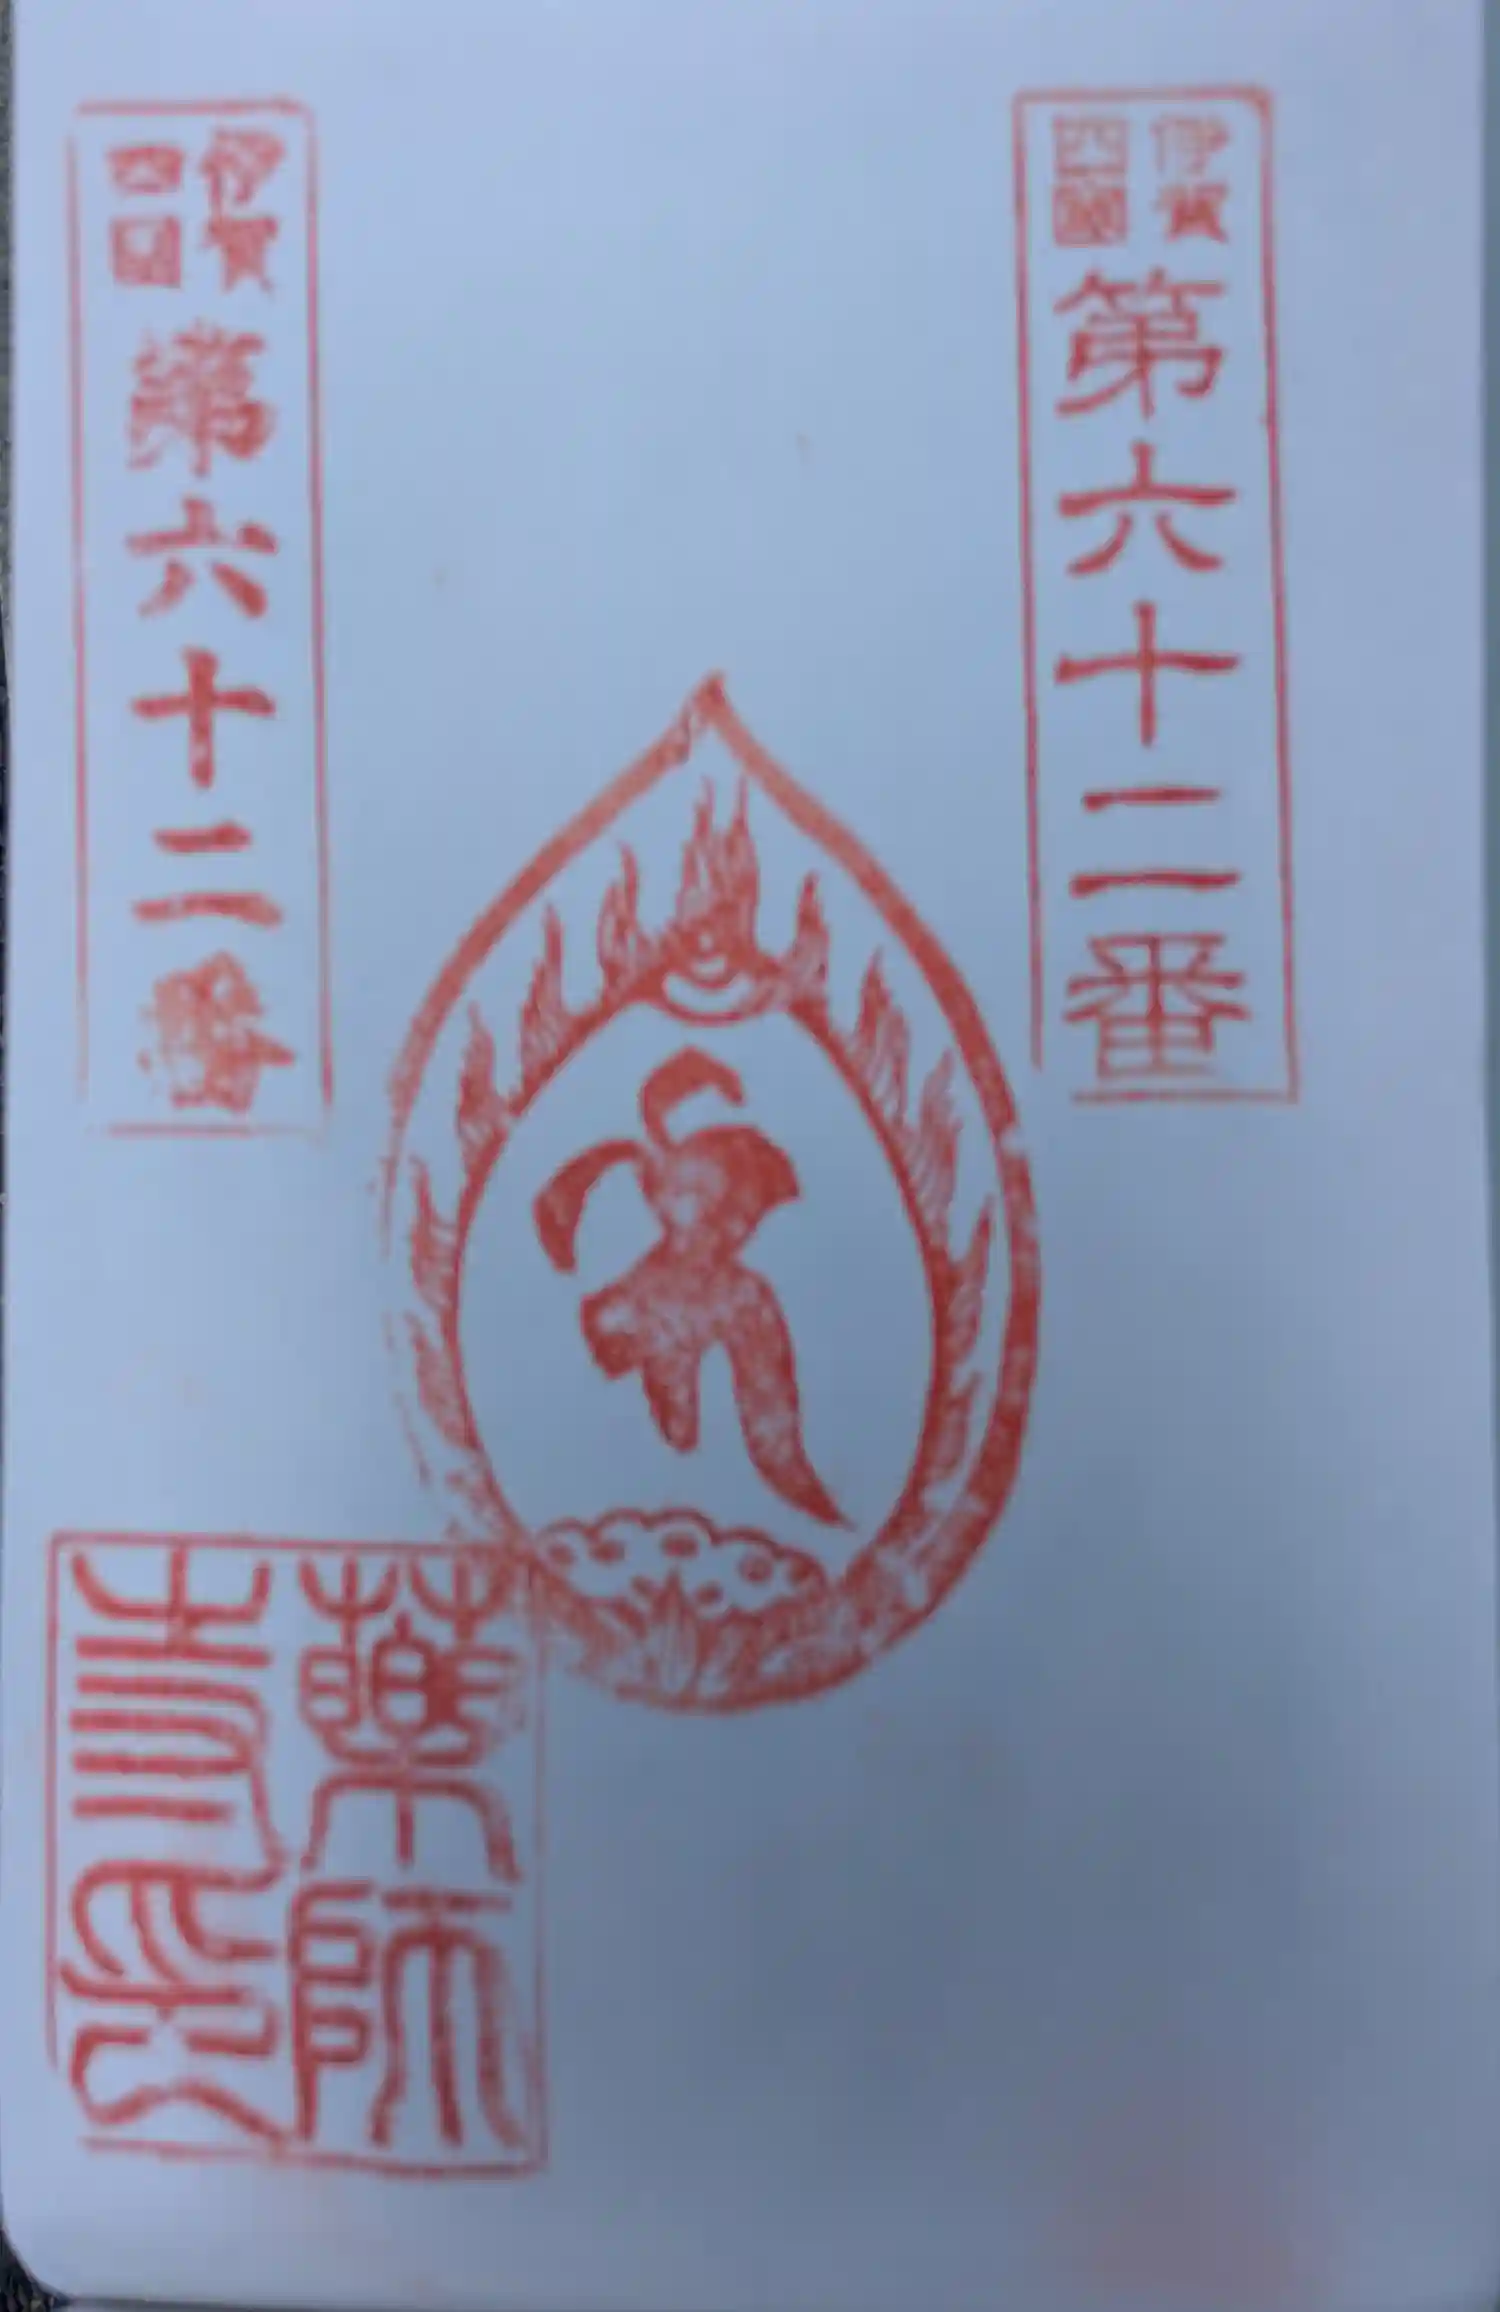 伊賀
四國
第六十二番
伊賀
四国
第六十二番
薬師
寺印